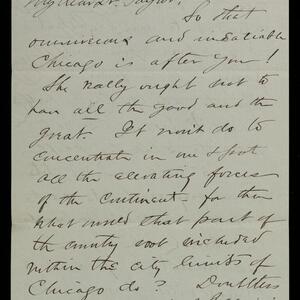 My dear Dr. Taylor,
So that
omnivorous and insatiable
Chicago is after you!
She really ought not to
have all the good and the
great. It won't do to
concentrate in one spot
all the elevating forces
of the continent - for then
what would that part of
the country not included
within the city limits of
Chicago do? Doubtless